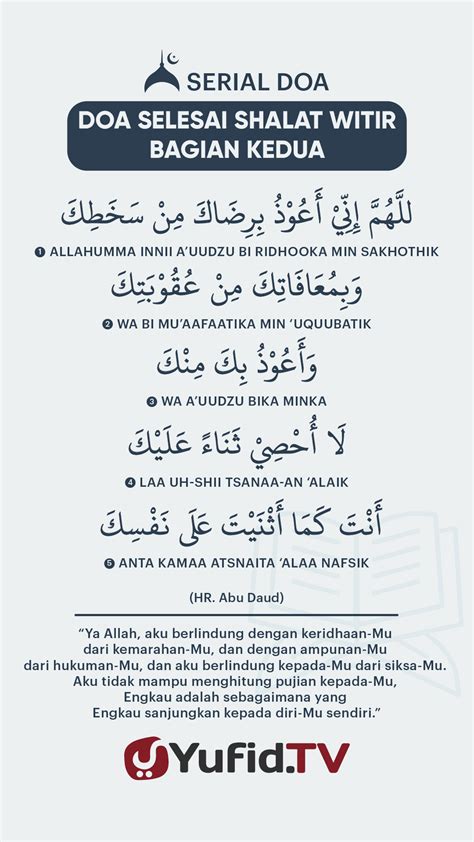 SERIAL DOA
DOA SELESAI SHALAT WITIR
BAGIAN KEDUA
للَّهُمَّ إِنِّيْ أَعُوْذُ بِرِضَاكَ مِنْ سَخَطِكَ
❶ ALLAHUMMA INNII A’UUDZU BI RIDHOOKA MIN SAKHOTHIK
وَبِمُعَافَاتِكَ مِنْ عُقُوْبَتِكَ
❷ WA BI MU’AAFAATIKA MIN ‘UQUUBATIK
وَأَعُوْذُ بِكَ مِنْكَ
❸ WA A’UUDZU BIKA MINKA
لَا أُحْصِيْ ثَنَاءً عَلَيْكَ
❹ LAA UH-SHII TSANAA-AN ‘ALAIK
أَنْتَ كَمَا أَثْنَيْتَ عَلَى نَفْسِكَ
❺ ANTA KAMAA ATSNAITA ‘ALAA NAFSIK
(HR. Abu Daud)
“Ya Allah, aku berlindung dengan keridhaan-Mu
dari kemarahan-Mu, dan dengan ampunan-Mu
dari hukuman-Mu, dan aku berlindung kepada-Mu dari siksa-Mu.
Aku tidak mampu menghitung pujian kepada-Mu,
Engkau adalah sebagaimana yang
Engkau sanjungkan kepada diri-Mu sendiri.”
Yufid.TV